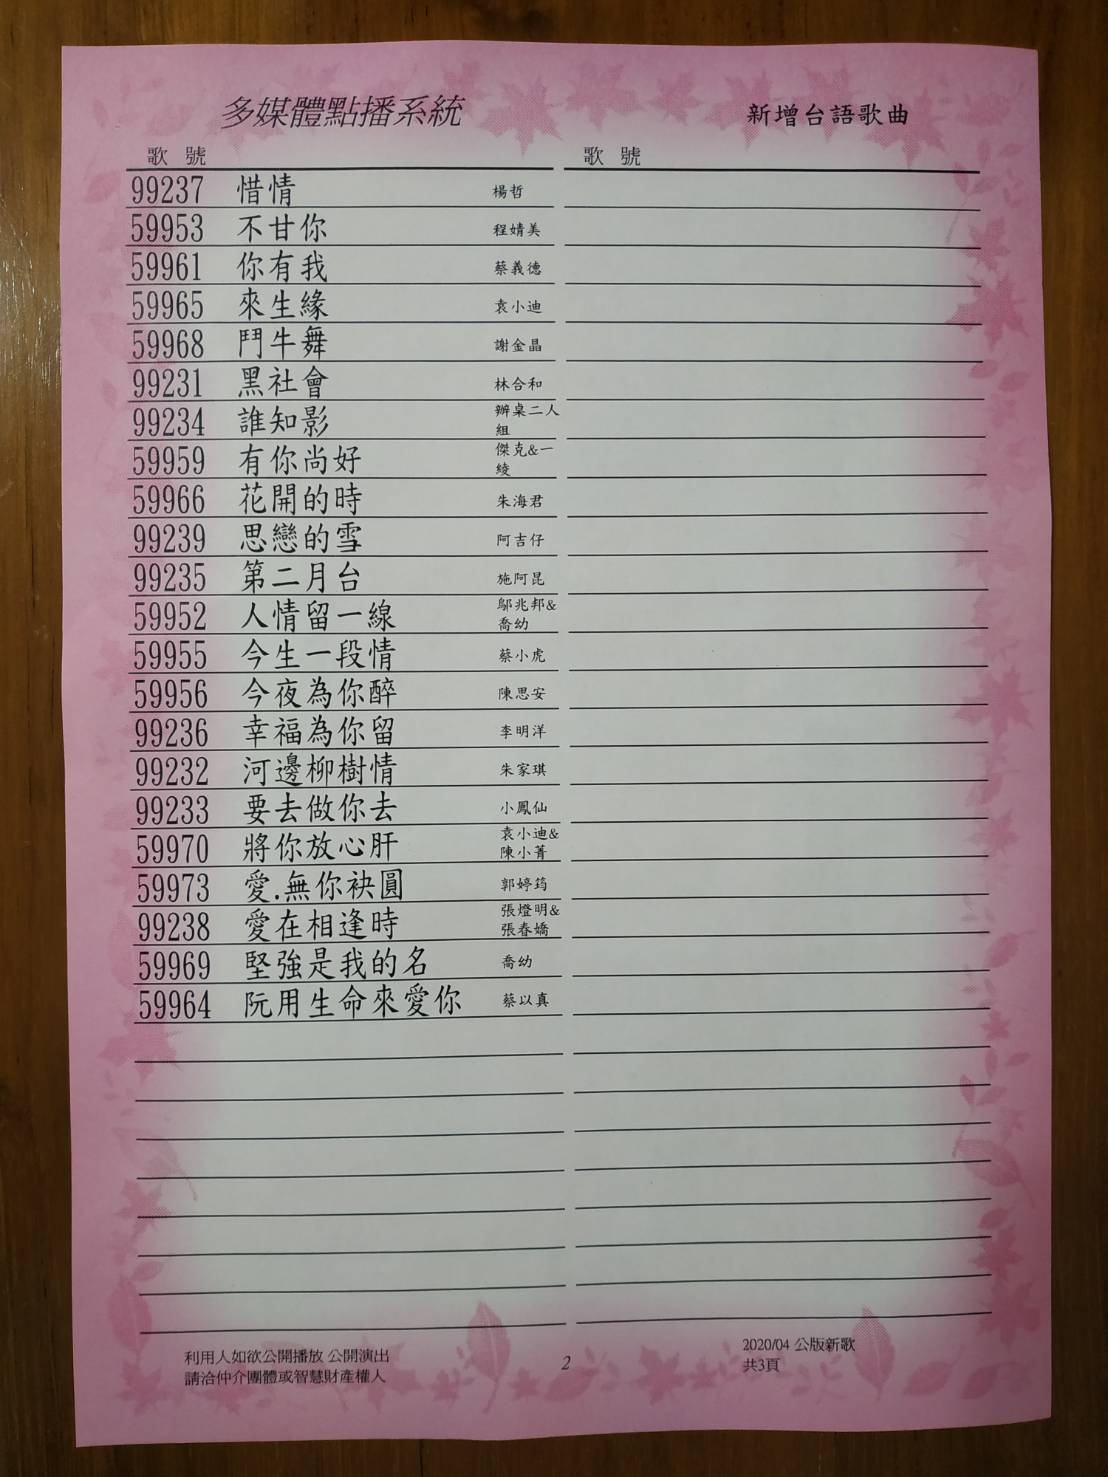 多媒體點播系統 新增台語歌曲
歌 號 歌 號
99237 惜情 楊哲
59953 不甘你 程婧美
59961 你有我 蔡義德
59965 來生緣 袁小迪
59968 鬥牛舞 謝金晶
99231 黑社會 林合和
99234 誰知影 辦桌二人
組
59959 有你尚好 傑克&一
綾
59966 花開的時 朱海君
99239 思戀的雪 阿吉仔
99235 第二月台 施阿昆
59952 人情留一線 鄔兆邦&
喬幼
59955 今生一段情 蔡小虎
59956 今夜為你醉 陳思安
99236 幸福為你留 李明洋
99232 河邊柳樹情 朱家琪
99233 要去做你去 小鳳仙
59970 將你放心肝 袁小迪&
陳小菁
59973 愛.無你袂圓 郭婷筠
99238 愛在相逢時 張燈明&
張春嬌
59969 堅強是我的名 喬幼
59964 阮用生命來愛你 蔡以真
利用人如欲公開播放 公開演出
請洽仲介團體或智慧財產權人
2
2020/04 公版新歌
共3頁